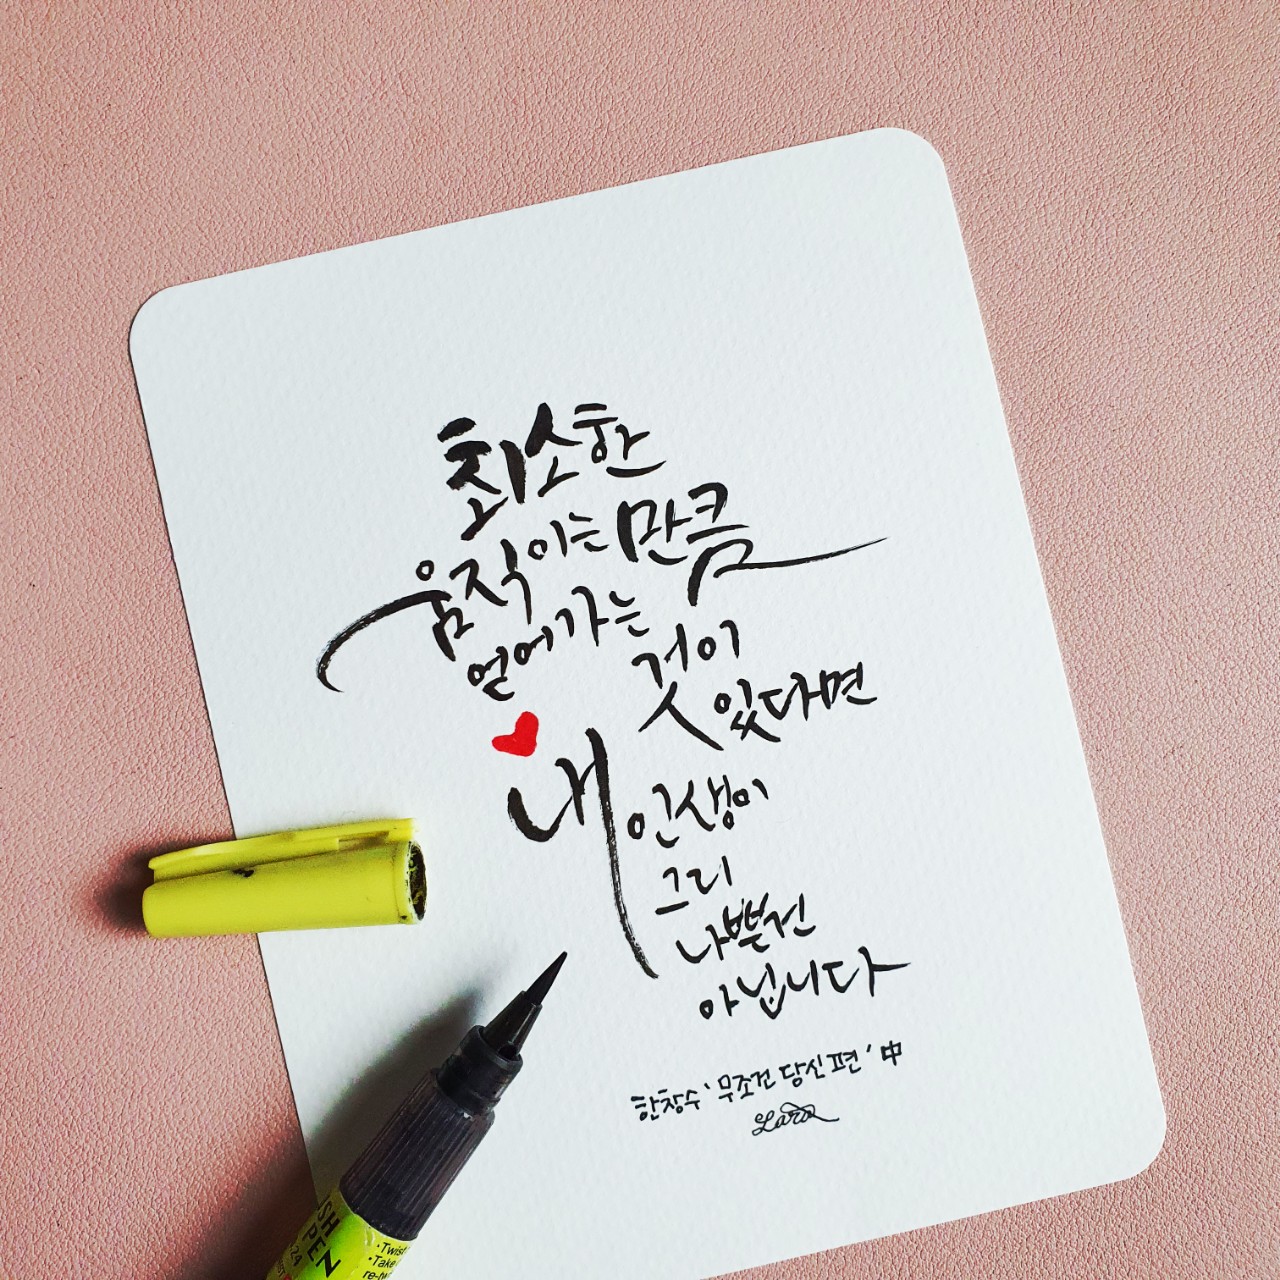 최소한
움직이는 만큼
얻어가는 것이
있다면
내 인생이
그리
나쁜건
아닙니다
한창수 '무조건 당신 편' 中
Lara
SH
PEN
·Twist
·Take
re-tw